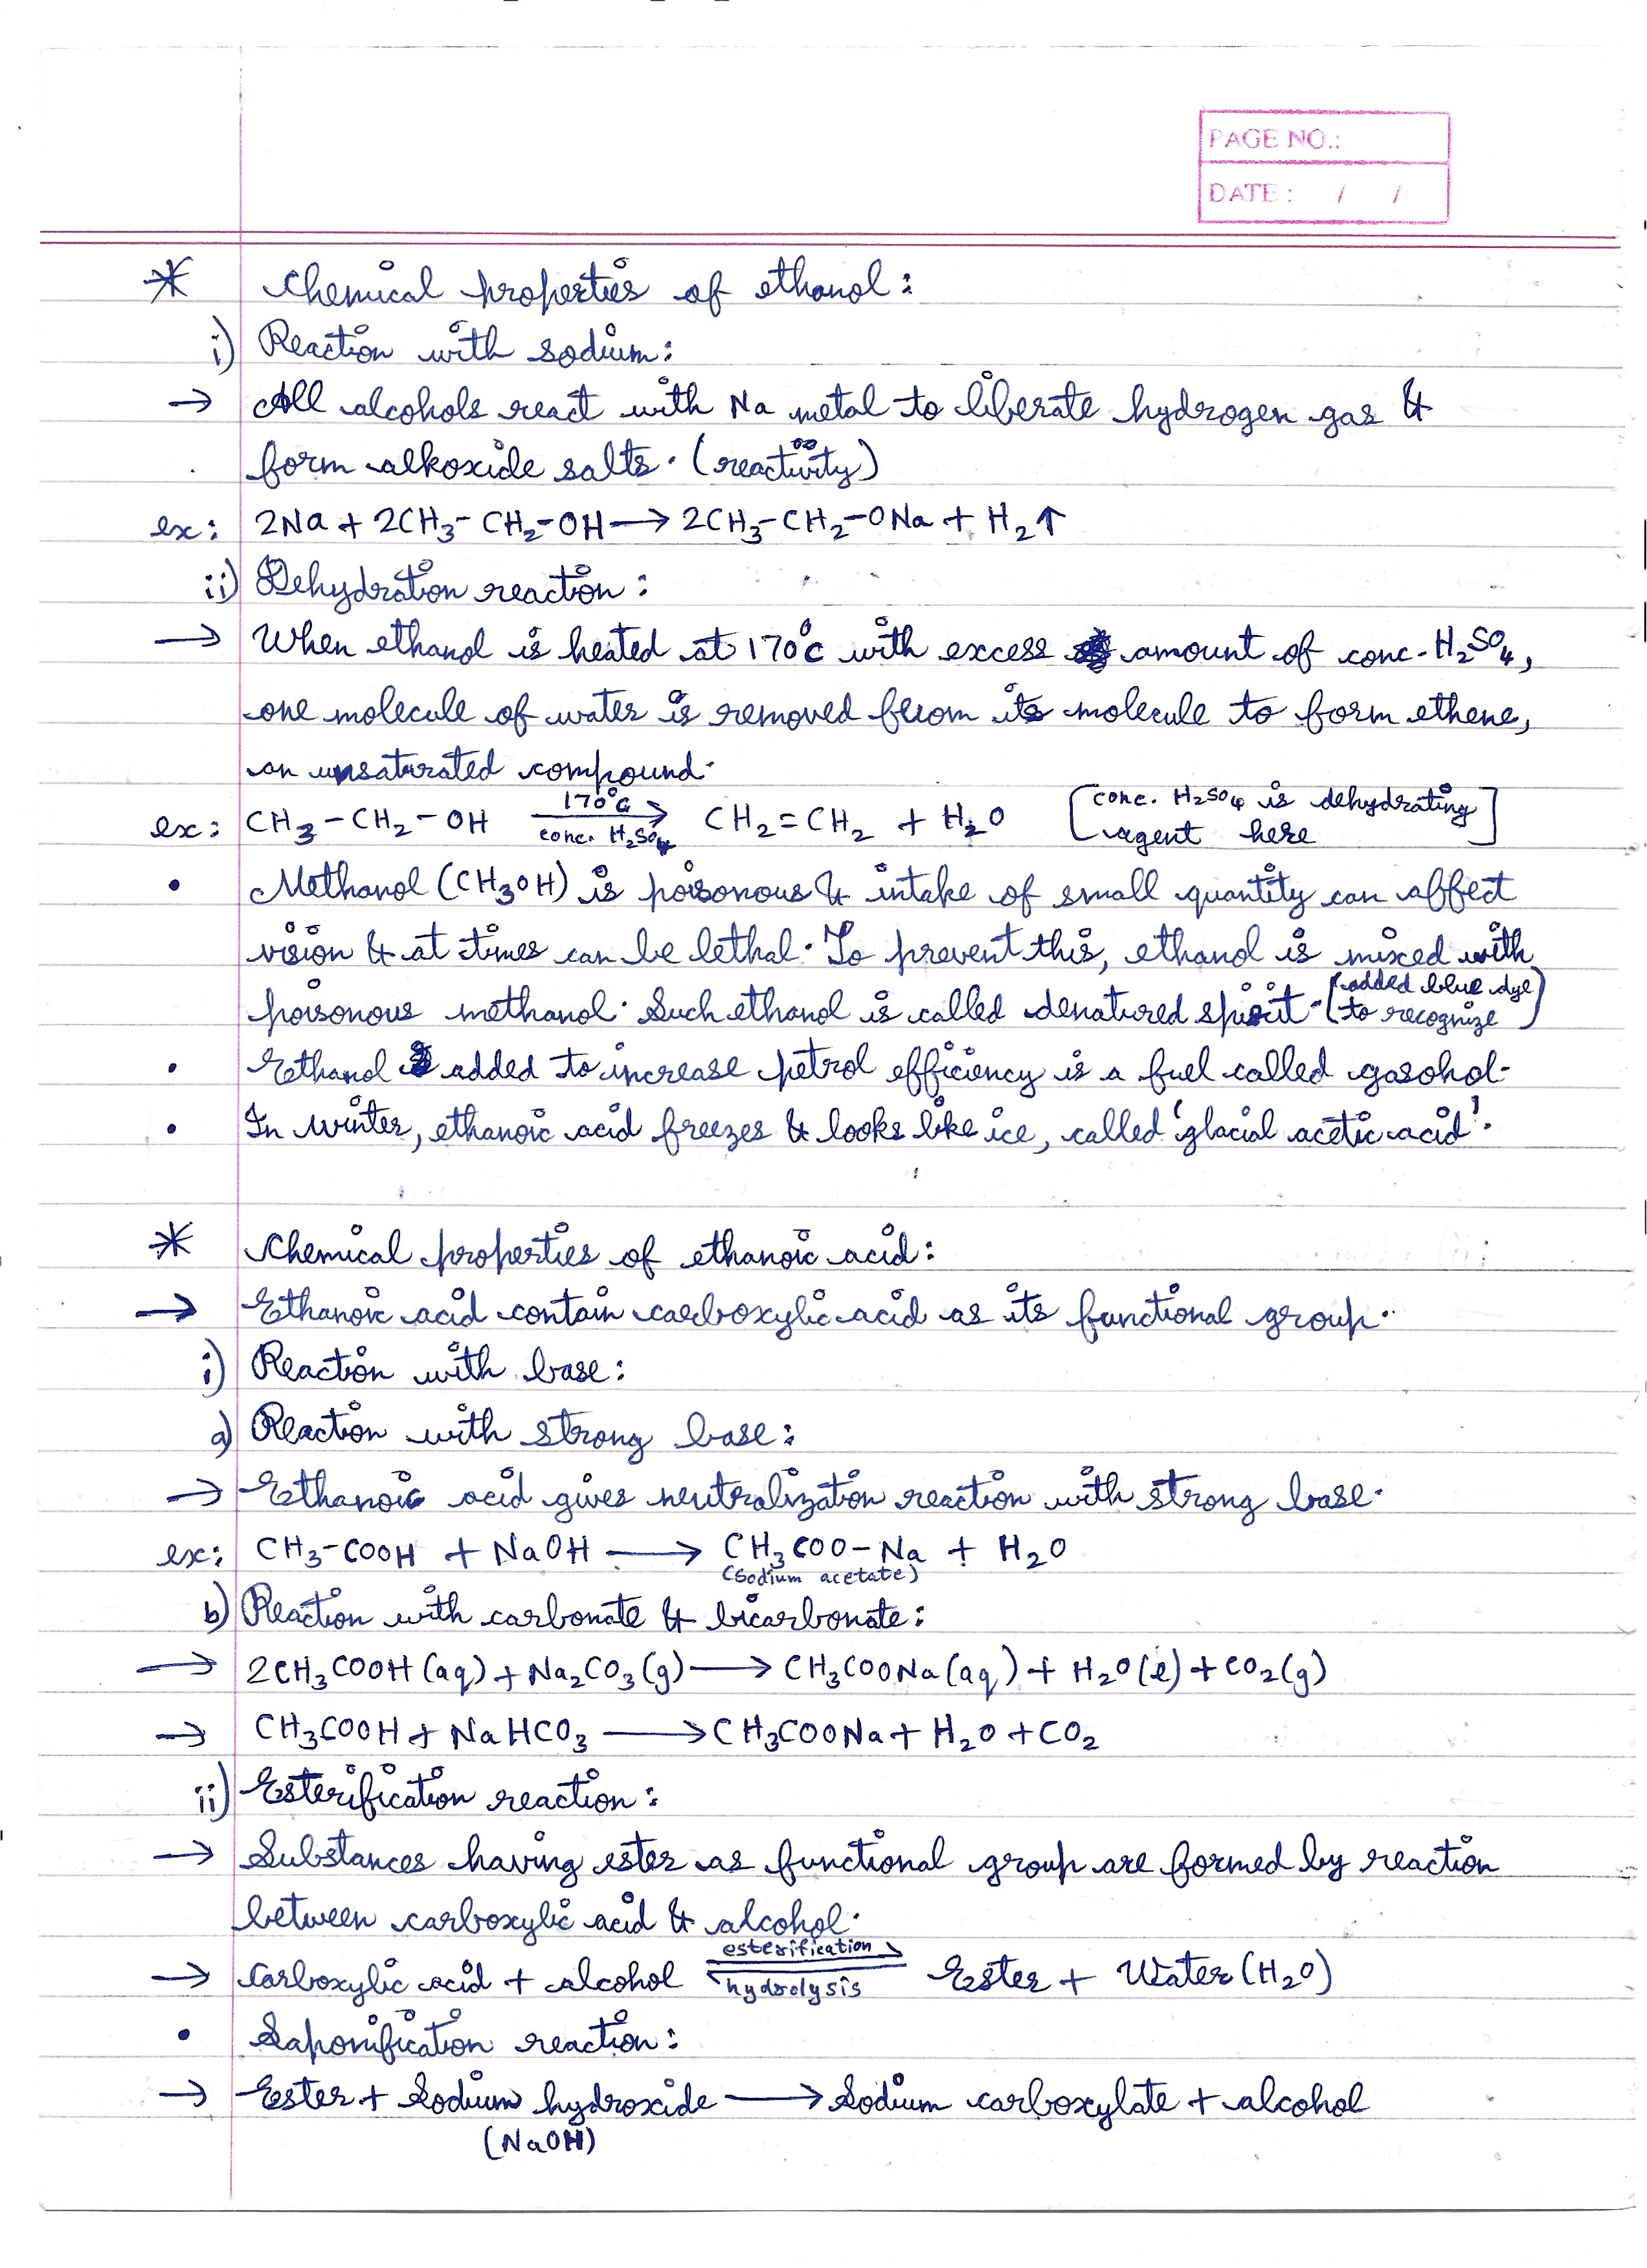 PAGE NO.:
DATE : / /
* Chemical properties of ethanol:
i) Reaction with sodium:
→ All alcohols react with Na metal to liberate hydrogen gas &
form alkoxide salts. (reactivity)
ex: 2Na + 2CH₃-CH₂-OH → 2CH₃-CH₂-ONa + H₂↑
ii) Dehydration reaction:
→ When ethanol is heated at 170°C with excess amount of conc. H₂SO₄,
one molecule of water is removed from its molecule to form ethene,
an unsaturated compound.
ex: CH₃-CH₂-OH 170°C → conc. H₂SO₄ CH₂=CH₂ + H₂O [conc. H₂SO₄ is dehydrating agent here]
• Methanol (CH₃OH) is poisonous & intake of small quantity can affect
vision & at times can be lethal. To prevent this, ethanol is mixed with
poisonous methanol. Such ethanol is called denatured spirit. (added blue dye to recognize)
• Ethanol added to increase petrol efficiency is a fuel called gasohol.
• In winter, ethanoic acid freezes & looks like ice, called 'glacial acetic acid'.
* Chemical properties of ethanoic acid:
→ Ethanoic acid contain carboxylic acid as its functional group.
i) Reaction with base:
a) Reaction with strong base:
→ Ethanoic acid gives neutralization reaction with strong base.
ex: CH₃-COOH + NaOH → CH₃COO-Na + H₂O
(Sodium acetate)
b) Reaction with carbonate & bicarbonate:
→ 2CH₃COOH (aq) + Na₂CO₃(g) → CH₃COONa (aq) + H₂O(l) + CO₂(g)
→ CH₃COOH + NaHCO₃ → CH₃COONa + H₂O + CO₂
ii) Esterification reaction:
→ Substances having ester as functional group are formed by reaction
between carboxylic acid & alcohol.
→ Carboxylic acid + alcohol esterification ⇌ hydrolysis Ester + Water (H₂O)
• Saponification reaction:
→ Ester + Sodium hydroxide → Sodium carboxylate + alcohol
(NaOH)